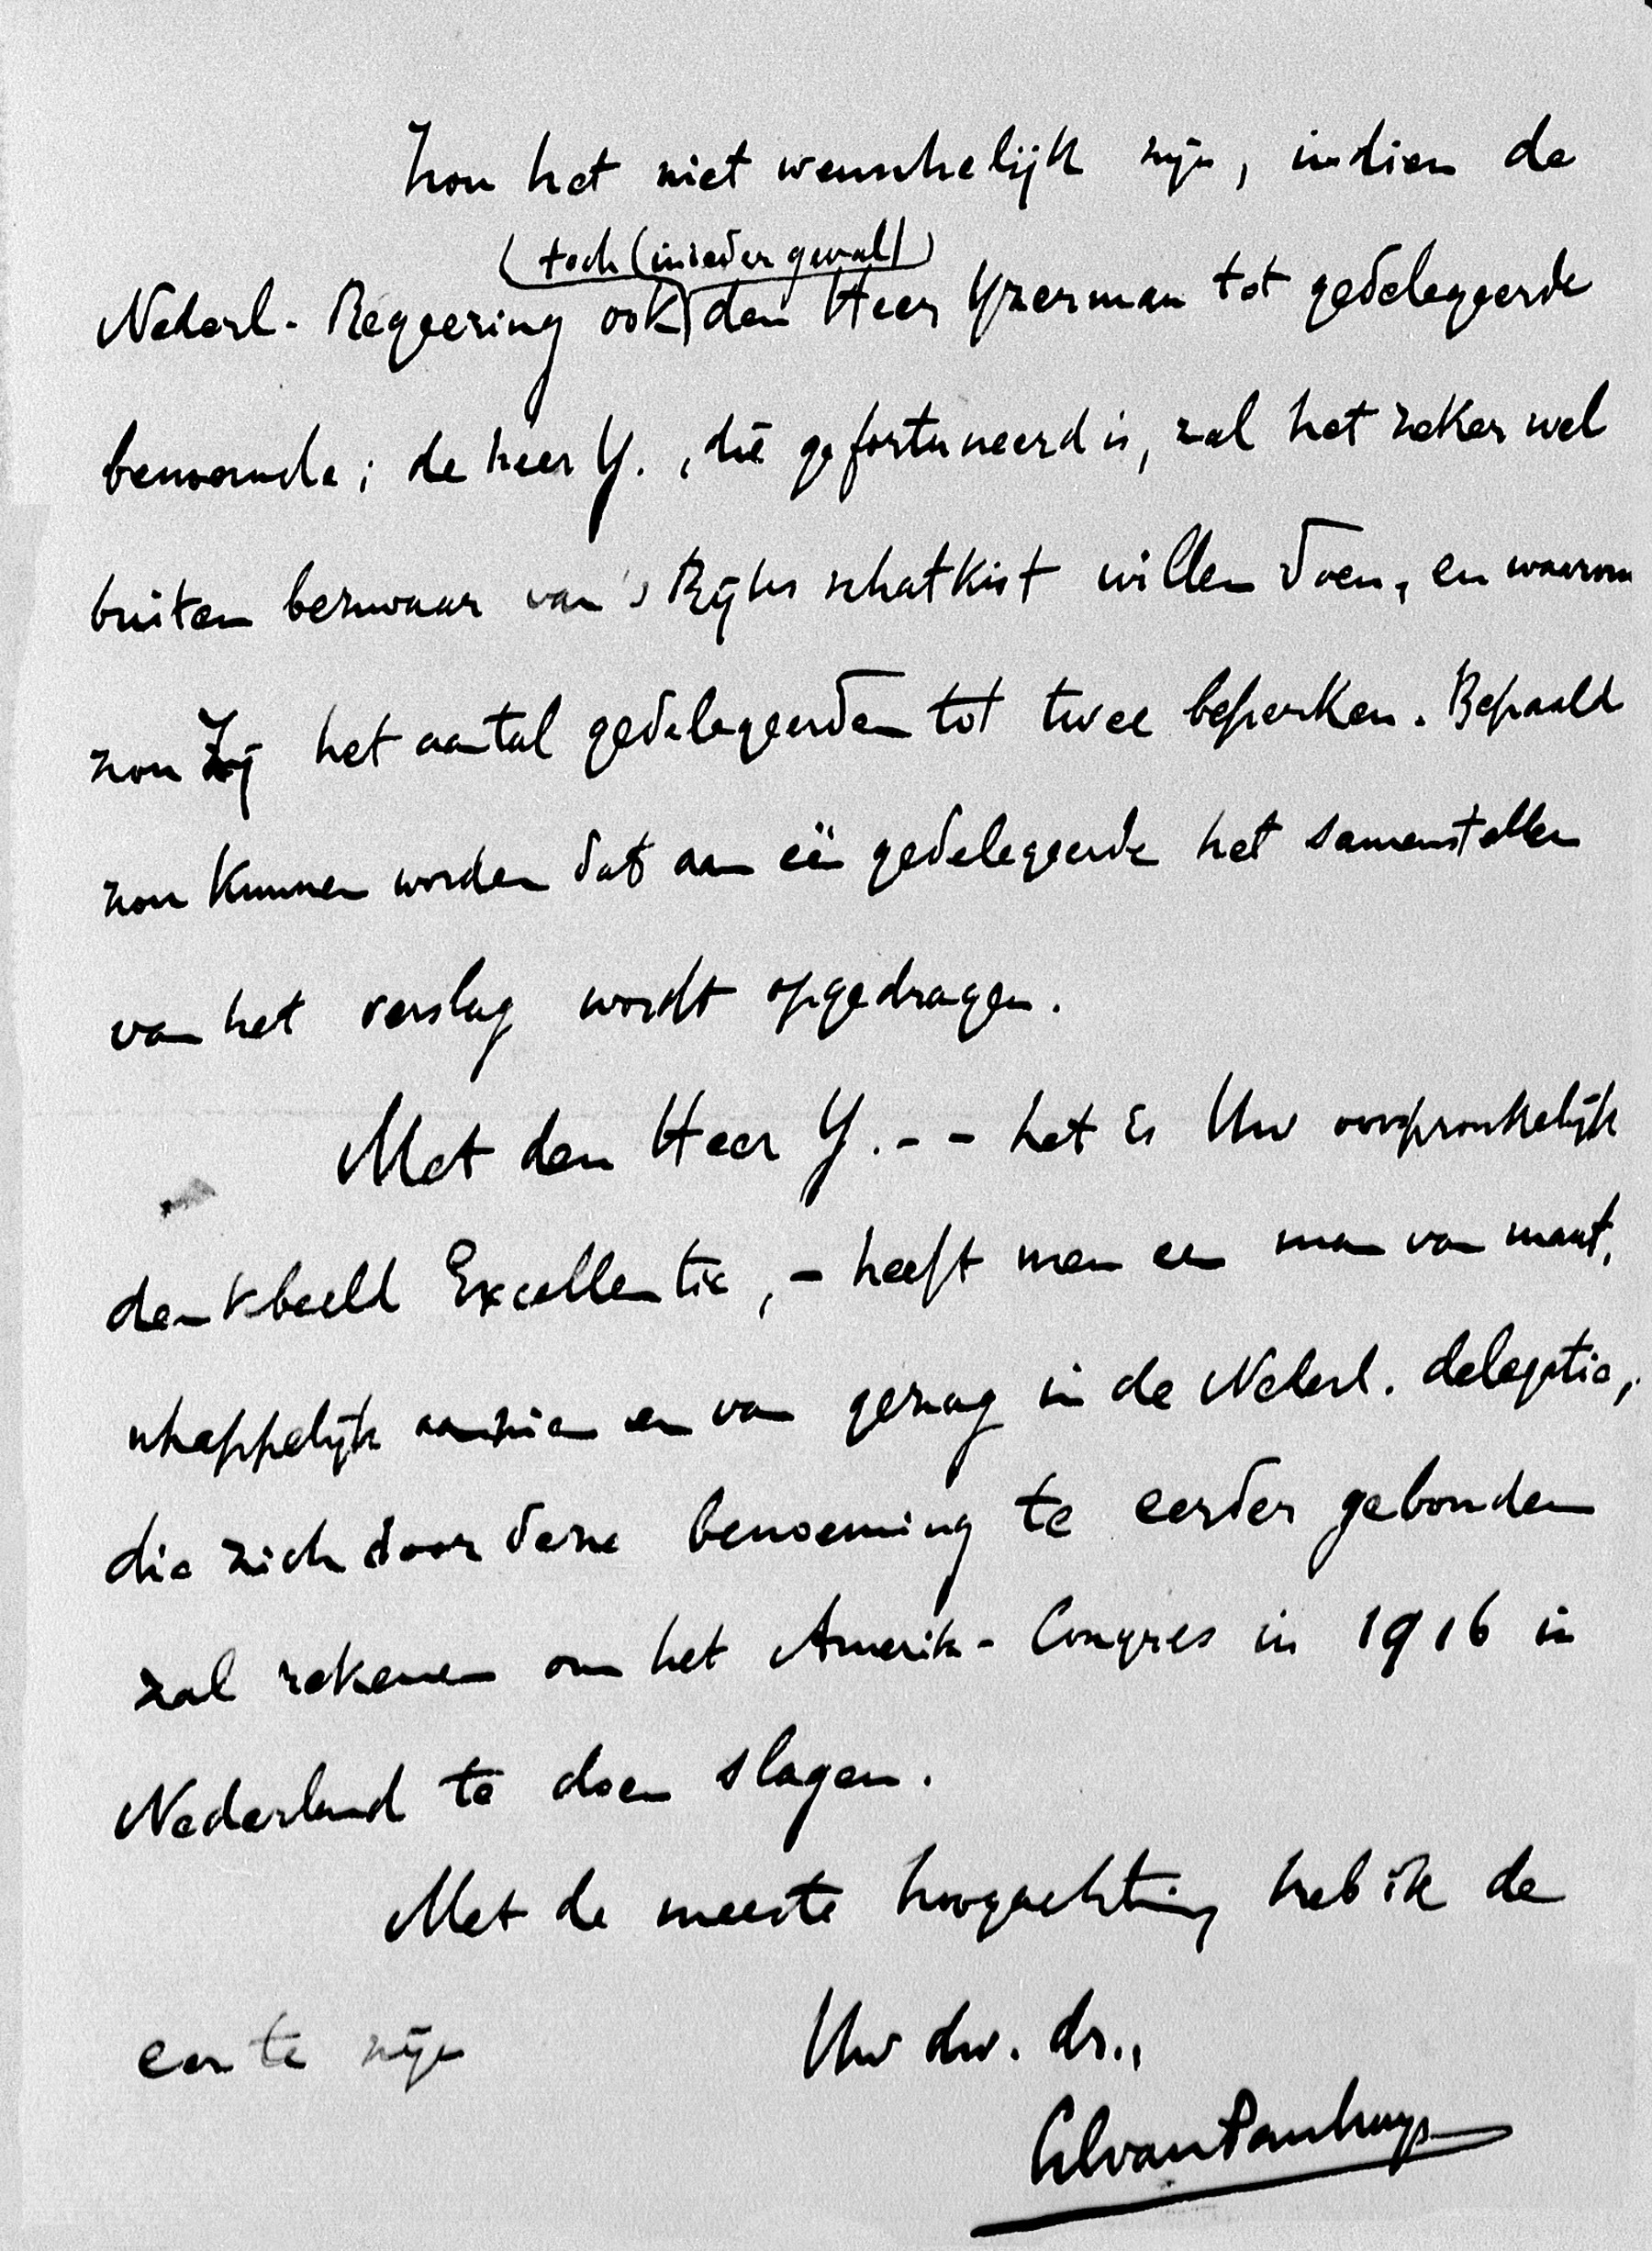 Zou het niet wenschelijk zijn, indien de
(toch (in ieder geval))
Nederl. Regeering ook den Heer Yzerman tot gedelegeerde
benoemde; de heer Y., die gefortuneerd is, zal het zeker wel
buiten bezwaar van 's Rijks schatkist willen doen, en waarom
zou Zij het aantal gedelegeerden tot twee beperken. Bepaald
zou kunnen worden dat aan één gedelegeerde het samenstellen
van het verslag wordt opgedragen.
Met den Heer Y. - - het is Uw oorspronkelijk
denkbeeld Excellentie, - heeft men een man van maat,
schappelijk aanzien en van gezag in de Nederl. delegatie,
die zich door deze benoeming te eerder gebonden
zal rekenen om het Amerik. Congres in 1916 in
Nederland te doen slagen.
Met de meeste hoogachting heb ik de
eer te zijn
Uw dw. dr.,
CLvanPanhuys